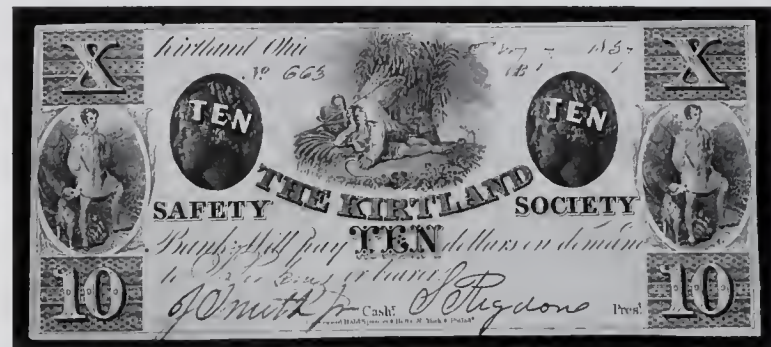 X Kirtland Ohio X
No 663
TEN TEN
THE KIRTLAND
SAFETY SOCIETY
will pay TEN dollars on demand
to or bearer
10 J Smith Jr Cash.r S Rigdon Pres.t 10